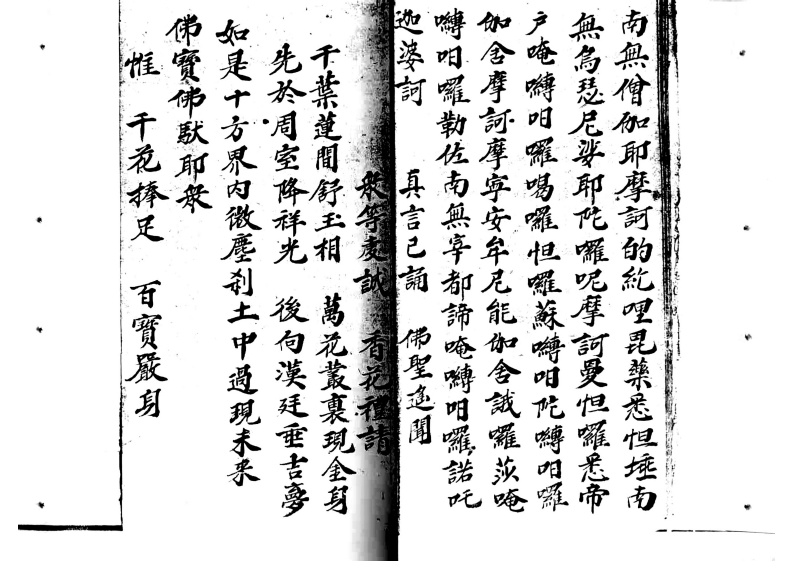 南無僧伽耶摩訶的紇哩毘藥悉怛埵南
無烏瑟尼娑耶陀囉呢摩訶曼怛囉悉帝
户唵嚩日囉喝囉怛囉蘇嚩日陀嚩日囉
伽舍摩訶摩寧安牟尼能伽舍誐囉莎唵
嚩日囉勒佐南無宰都諦唵嚩日囉諾吒
迦婆訶 真言已誦 佛聖遙聞
衆等虔誠 香花禮請
千葉蓮間舒玉相 萬花叢裏現全身
先於周室降祥光 後向漢廷垂吉夢
如是十方界内微塵刹土中過現未来
佛寶佛馱耶衆
惟 千花捧足 百寶嚴身